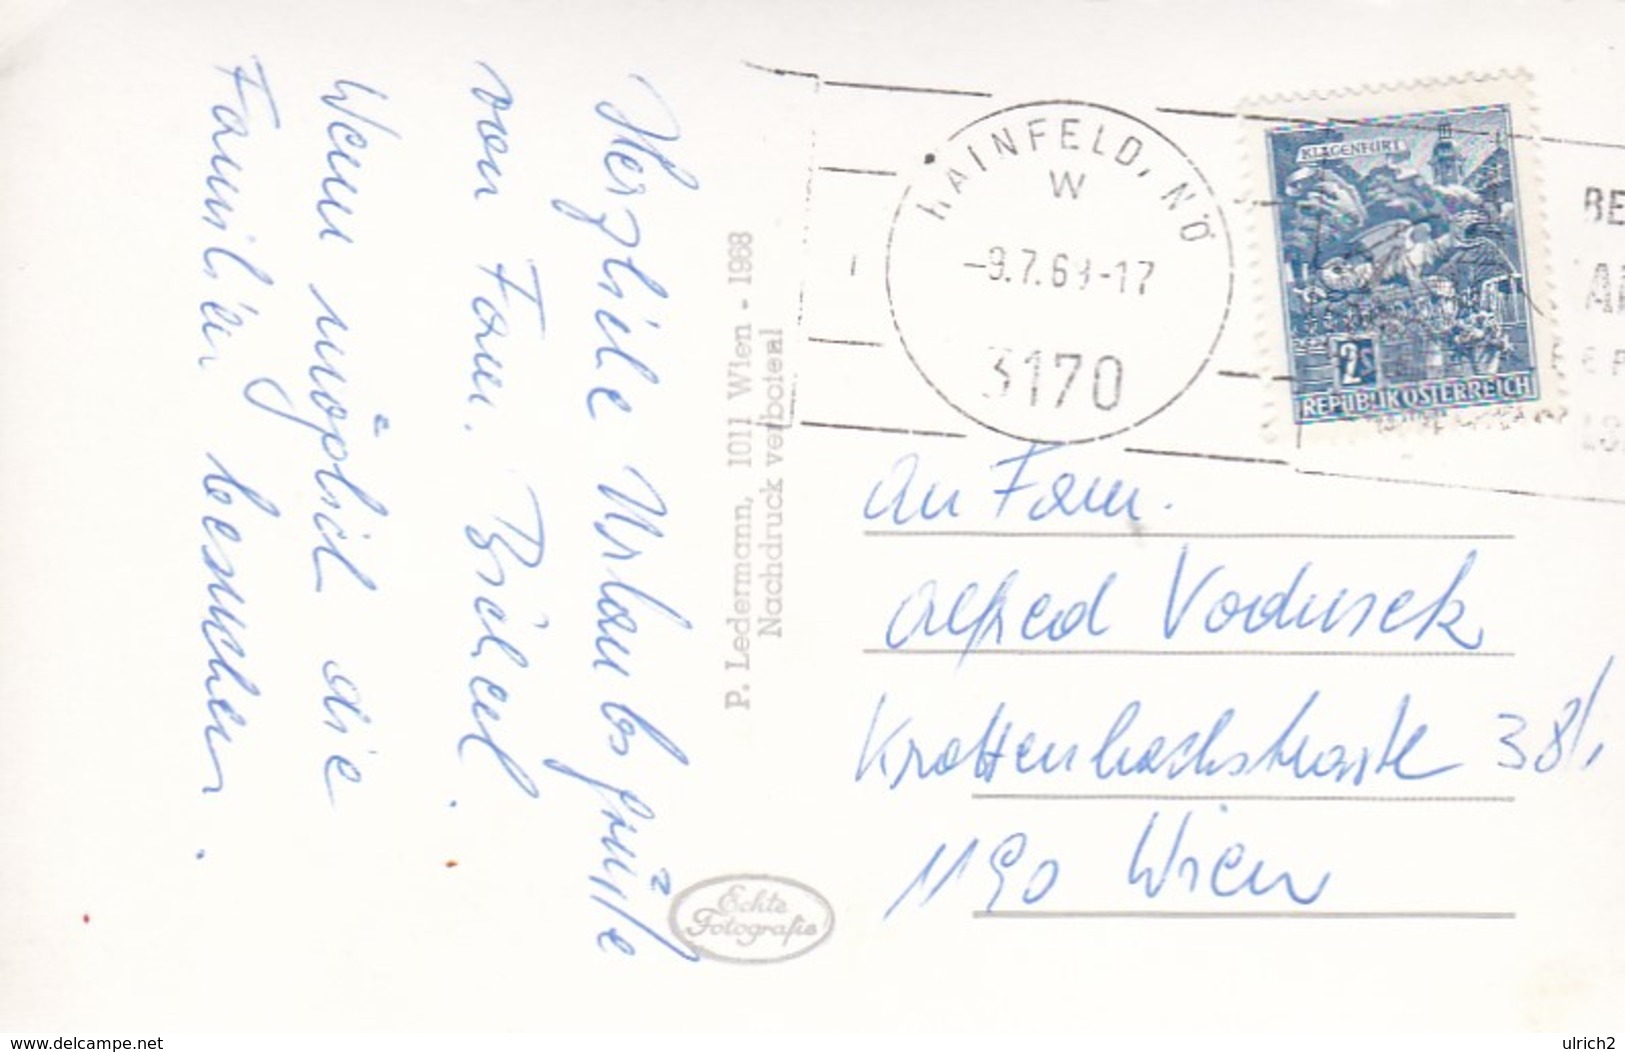 Herzliche Urlaubsgrüße
von Fam. Brückl.
Wenn möglich die
Familien besuchen.
P. Ledermann, 1011 Wien - 1968
Nachdruck verboten
Echte
Fotografie
HAINFELD, NÖ
W
-9.7.69-17
3170
KLAGENFURT
2S
REPUBLIK ÖSTERREICH
BE
An Fam.
Alfred Vodusek
Krottenbachstraße 38/1
1190 Wien
www.delcampe.net
ulrich2